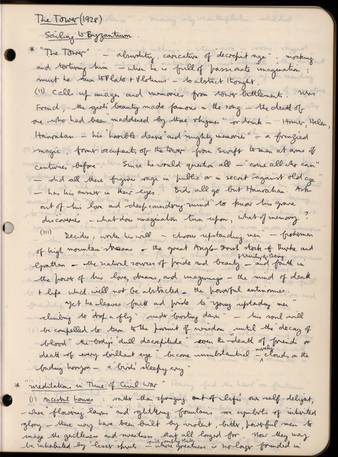 The Tower (1928)
Sailing to Byzantium
* 'The Tower' - absurdity, caricature of decrepit age, mocking
and torturing him - when he is full of passionate imagination
must he turn to Plato & Plotinus - to abstract thought
(ii) Calls up images and memories from tower battlements. Mrs
French, the girl's beauty made famous in the song - the death of
one who had been maddened by those rhymes - or drink - Homer, Helen,
Hanrahan - his 'horrible desire' and mighty memories -
magic, former occupants of the tower from
centuries before. Since he would question all - 'come all who can'
- did all these figures rage in public or in secret against old age
- he has his answer in their eyes. Bids all go but Hanrahan. Asks
out of his love and 'deep considering mind' to know his grave
discoveries - what does imagination turn upon, what of memory?
(iii)
Decides, writes his will - chooses upstanding men - fishermen
of high mountain streams - the great people of Burke and
Grattan - the natural sources of pride and beauty - and faith in
the power of his love, dreams, and imaginings - the mind of death
& life which will not be abstracted - the powerful
Yet he leaves faith and pride to young upstanding men -
climbing to drop a fly, under bursting dawn - his soul will
be compelled to turn to the pursuit of wisdom until the decay of
blood, the body's dull decrepitude - even the death of friends or
death of every brilliant eye become unsubstantial - merely clouds on the
fading horizon - a bird's sleepy cry
* Meditations in Time of Civil War
(i) Ancestral houses - rather the springing out of life's own self-delight,
- where flowering lawns and glittering fountains are symbols of inherited
glory - they may have been built by violent bitter, powerful men to
image the gentleness and sweetness that all longed for. Now they may
be inhabited by lesser - where greatness is no longer founded in